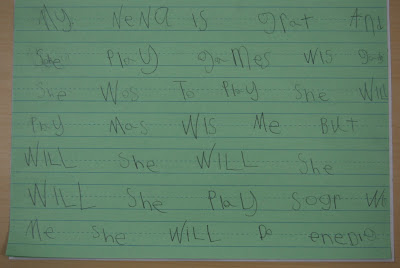 My NeNa is grat And
She Play games wis
She Wos To Play She Will
Play Mas Wis Me But
WILL She WILL She
WILL She PlaY sogr Wi
Me She WILL Do enedie